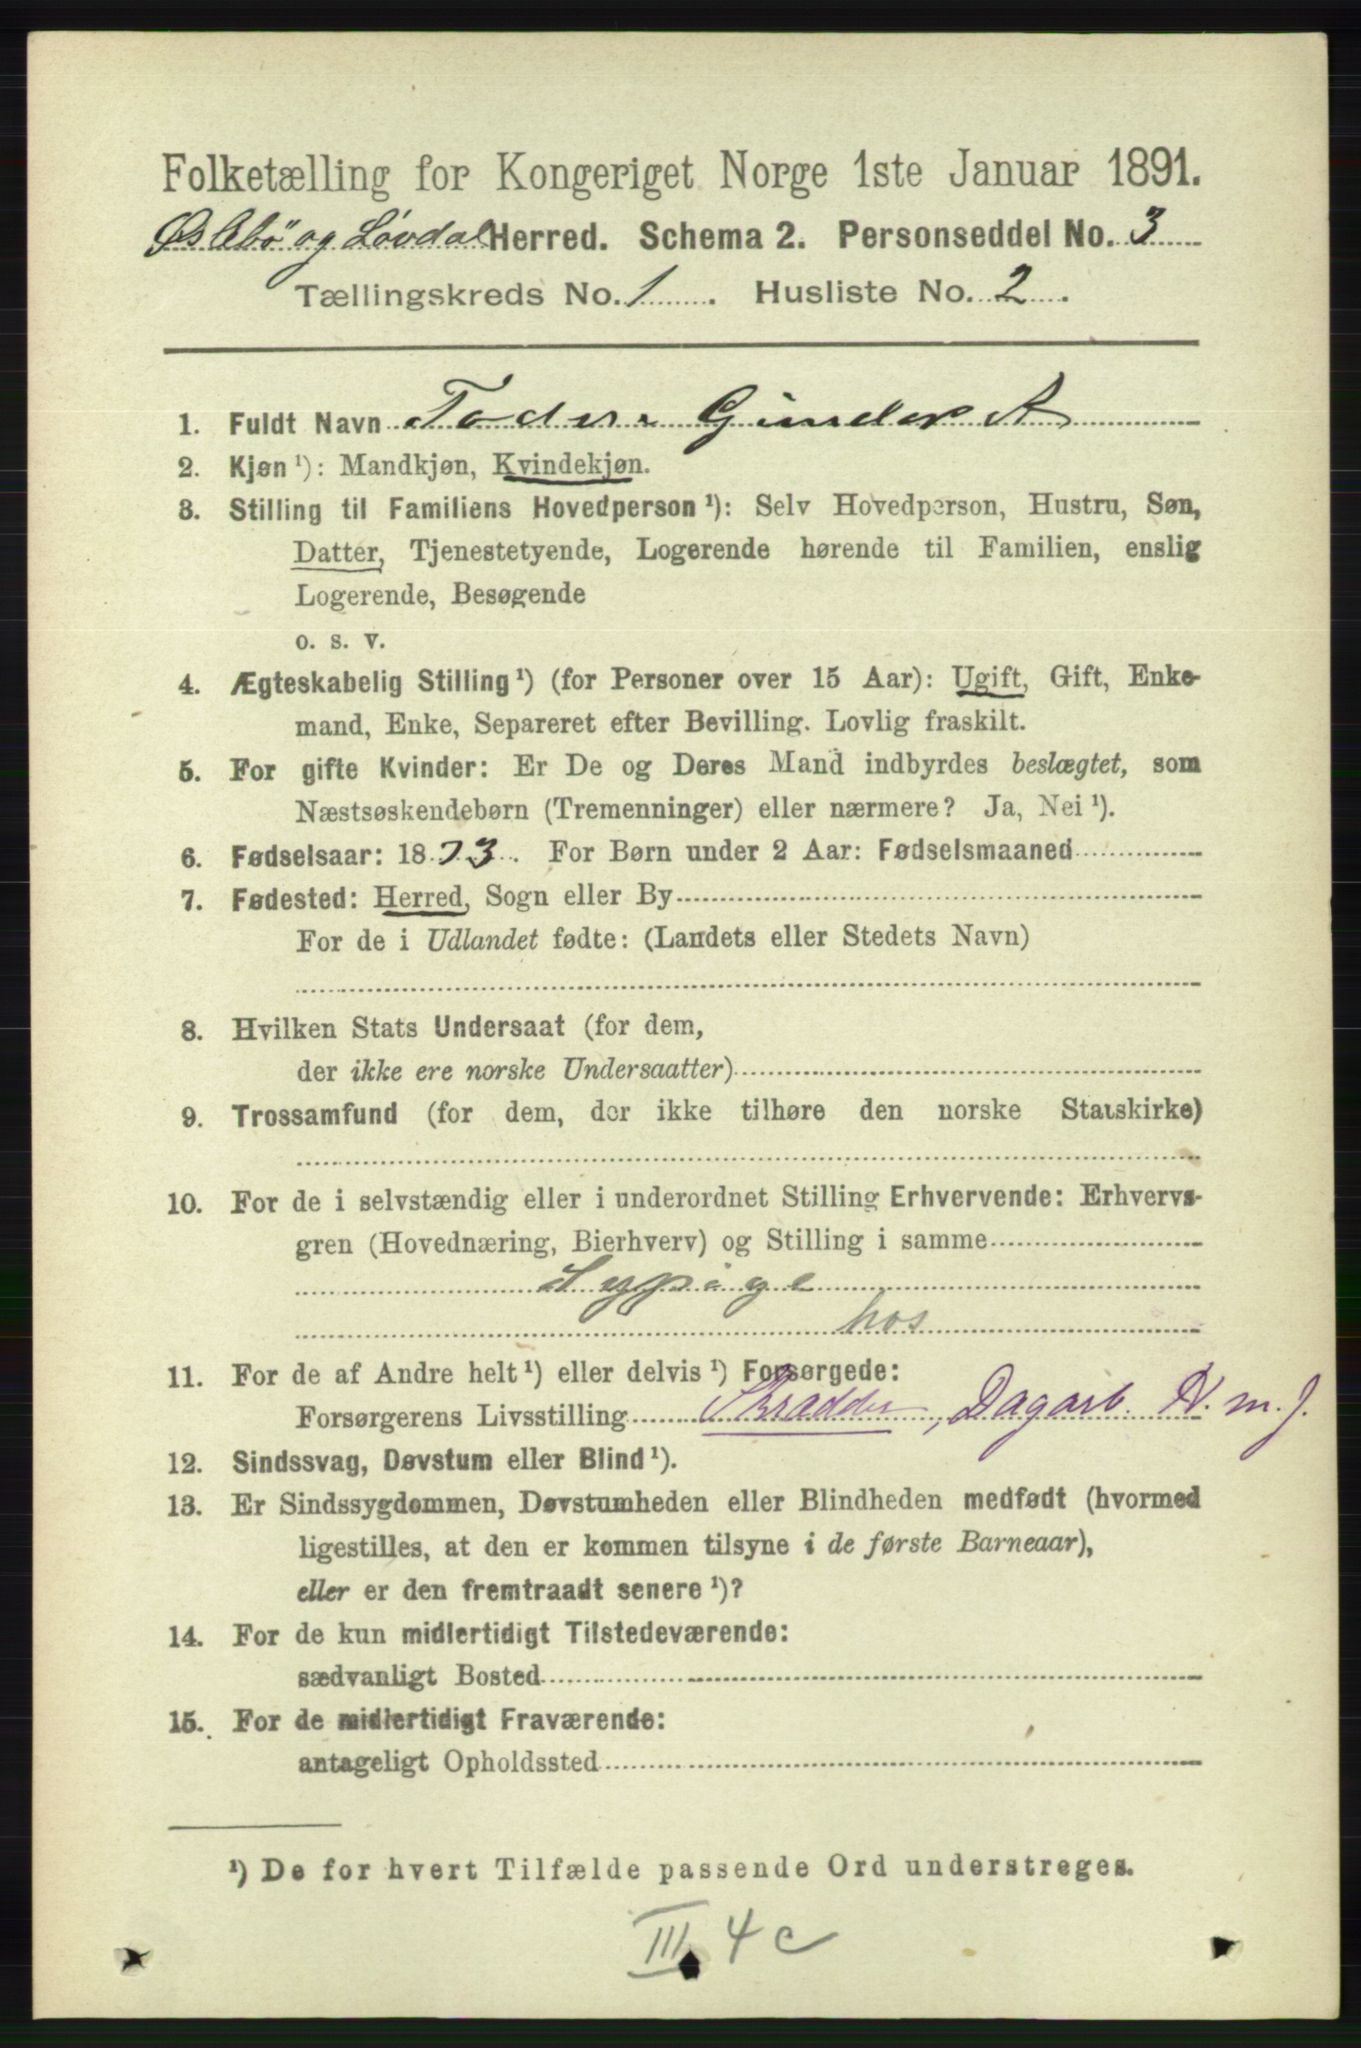 Folketælling for Kongeriget Norge 1ste Januar 1891.
Øslebö og Løvdal Herred. Schema 2. Personseddel No. 3
Tællingskreds No. 1. Husliste No. 2.
1. Fuldt Navn Todine Gunders A
2. Kjøn ¹): Mandkjøn, Kvindekjøn.
3. Stilling til Familiens Hovedperson ¹): Selv Hovedperson, Hustru, Søn,
Datter, Tjenestetyende, Logerende hørende til Familien, enslig
Logerende, Besøgende
o. s. v.
4. Ægteskabelig Stilling ¹) (for Personer over 15 Aar): Ugift, Gift, Enke-
mand, Enke, Separeret efter Bevilling. Lovlig fraskilt.
5. For gifte Kvinder: Er De og Deres Mand indbyrdes beslægtet, som
Næstsøskendebørn (Tremenninger) eller nærmere? Ja, Nei ¹).
6. Fødselsaar: 1873. For Børn under 2 Aar: Fødselsmaaned
7. Fødested: Herred, Sogn eller By
For de i Udlandet fødte: (Landets eller Stedets Navn)
8. Hvilken Stats Undersaat (for dem,
der ikke ere norske Undersaatter)
9. Trossamfund (for dem, der ikke tilhøre den norske Statskirke)
10. For de i selvstændig eller i underordnet Stilling Erhvervende: Erhvervs-
gren (Hovednæring, Bierhverv) og Stilling i samme
Sypige
hos
11. For de af Andre helt ¹) eller delvis ¹) Forsørgede:
Forsørgerens Livsstilling Skrædder, Dagarb. H. m. J.
12. Sindssvag, Døvstum eller Blind ¹).
13. Er Sindssygdommen, Døvstumheden eller Blindheden medfødt (hvormed
ligestilles, at den er kommen tilsyne i de første Barneaar),
eller er den fremtraadt senere ¹)?
14. For de kun midlertidigt Tilstedeværende:
sædvanligt Bosted
15. For de midlertidigt Fraværende:
antageligt Opholdssted
¹) De for hvert Tilfælde passende Ord understreges.
III. 4c